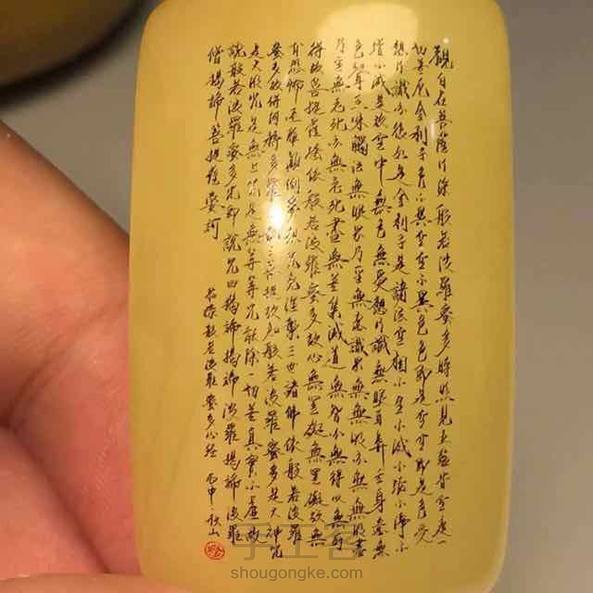 觀自在菩薩行深般若波羅蜜多時照見五蘊皆空度一
切苦厄舍利子色不異空空不異色色即是空空即是色受
想行識亦復如是舍利子是諸法空相不生不滅不垢不淨不
增不減是故空中無色無受想行識無眼耳鼻舌身意無
色聲香味觸法無眼界乃至無意識界無無明亦無無明盡
乃至無老死亦無老死盡無苦集滅道無智亦無得以無所
得故菩提薩埵依般若波羅蜜多故心無罣礙無罣礙故無
有恐怖遠離顛倒夢想究竟涅槃三世諸佛依般若波羅
蜜多故得阿耨多羅三菩提故知般若波羅蜜多是大神咒
是大明咒是無上咒是無等等咒能除一切苦真實不虛故
說般若波羅蜜多咒即說咒曰揭諦揭諦波羅揭諦波羅
僧揭諦菩提薩婆訶
般若波羅蜜多心經 丙申 秋山
手工客
shougongke.com